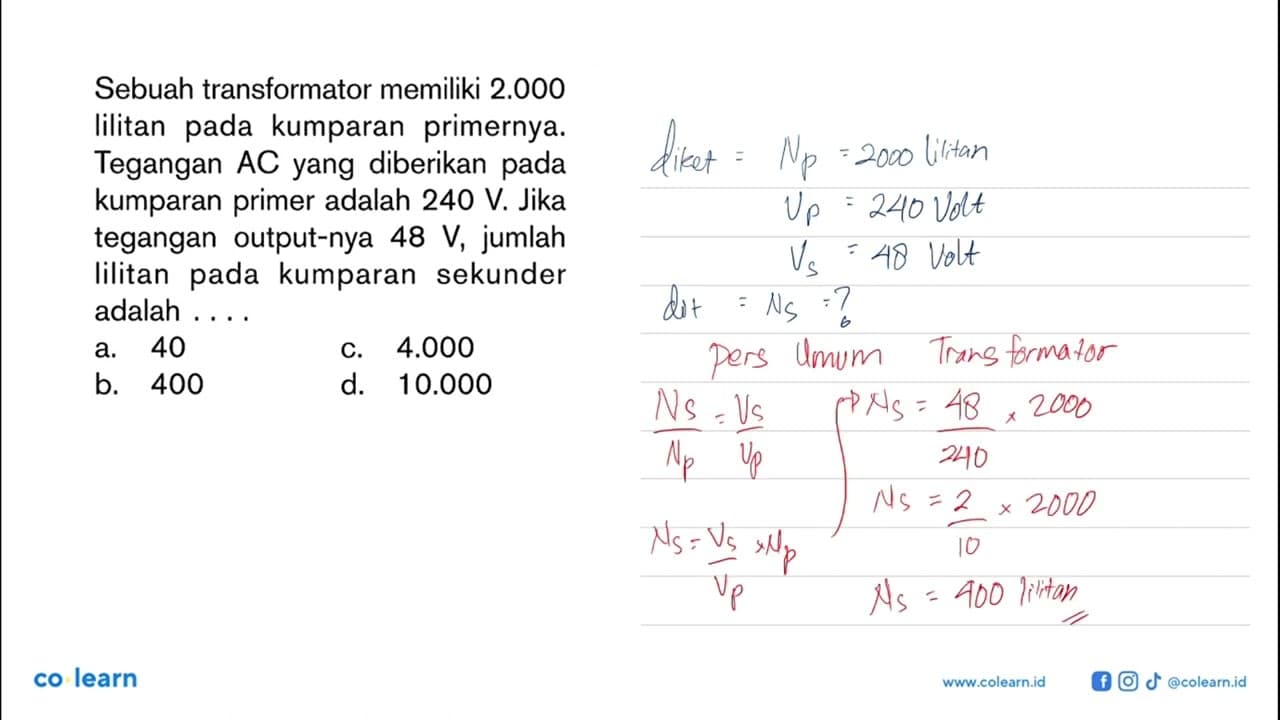 Sebuah transformator memiliki 2.000
lilitan pada kumparan primernya.
Tegangan AC yang diberikan pada
kumparan primer adalah 240 V. Jika
tegangan output-nya 48 V, jumlah
lilitan pada kumparan sekunder
adalah . . . .
a. 40 c. 4.000
b. 400 d. 10.000
diket = Np = 2000 lilitan
Vp = 240 Volt
Vs = 48 Volt
dit = Ns = ?
Pers Umum Transformator
Ns/Np = Vs/Vp
Ns = Vs/Vp × Np
Ns = 48/240 × 2000
Ns = 2/10 × 2000
Ns = 400 lilitan
co learn
www.colearn.id @colearn.id